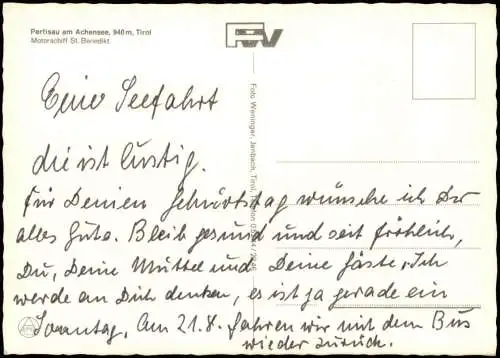 Pertisau am Achensee, 940 m, Tirol
Motorschiff St. Benedikt
Eine Seefahrt
die ist lustig.
Für Deinen Geburtstag wünsche ich Dir
alles Gute. Bleib gesund und seit fröhlich,
Du, Deine Muttel und Deine Gäste. Ich
werde an Dich denken, es ist ja gerade ein
Sonntag. Am 21.8. fahren wir mit dem Bus
wieder zurück.
Foto Weninger, Jenbach, Tirol, Telefon